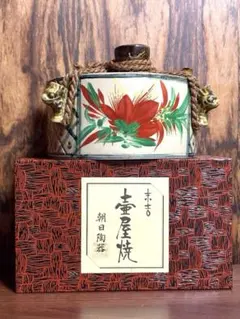 壷屋焼
朝日陶器